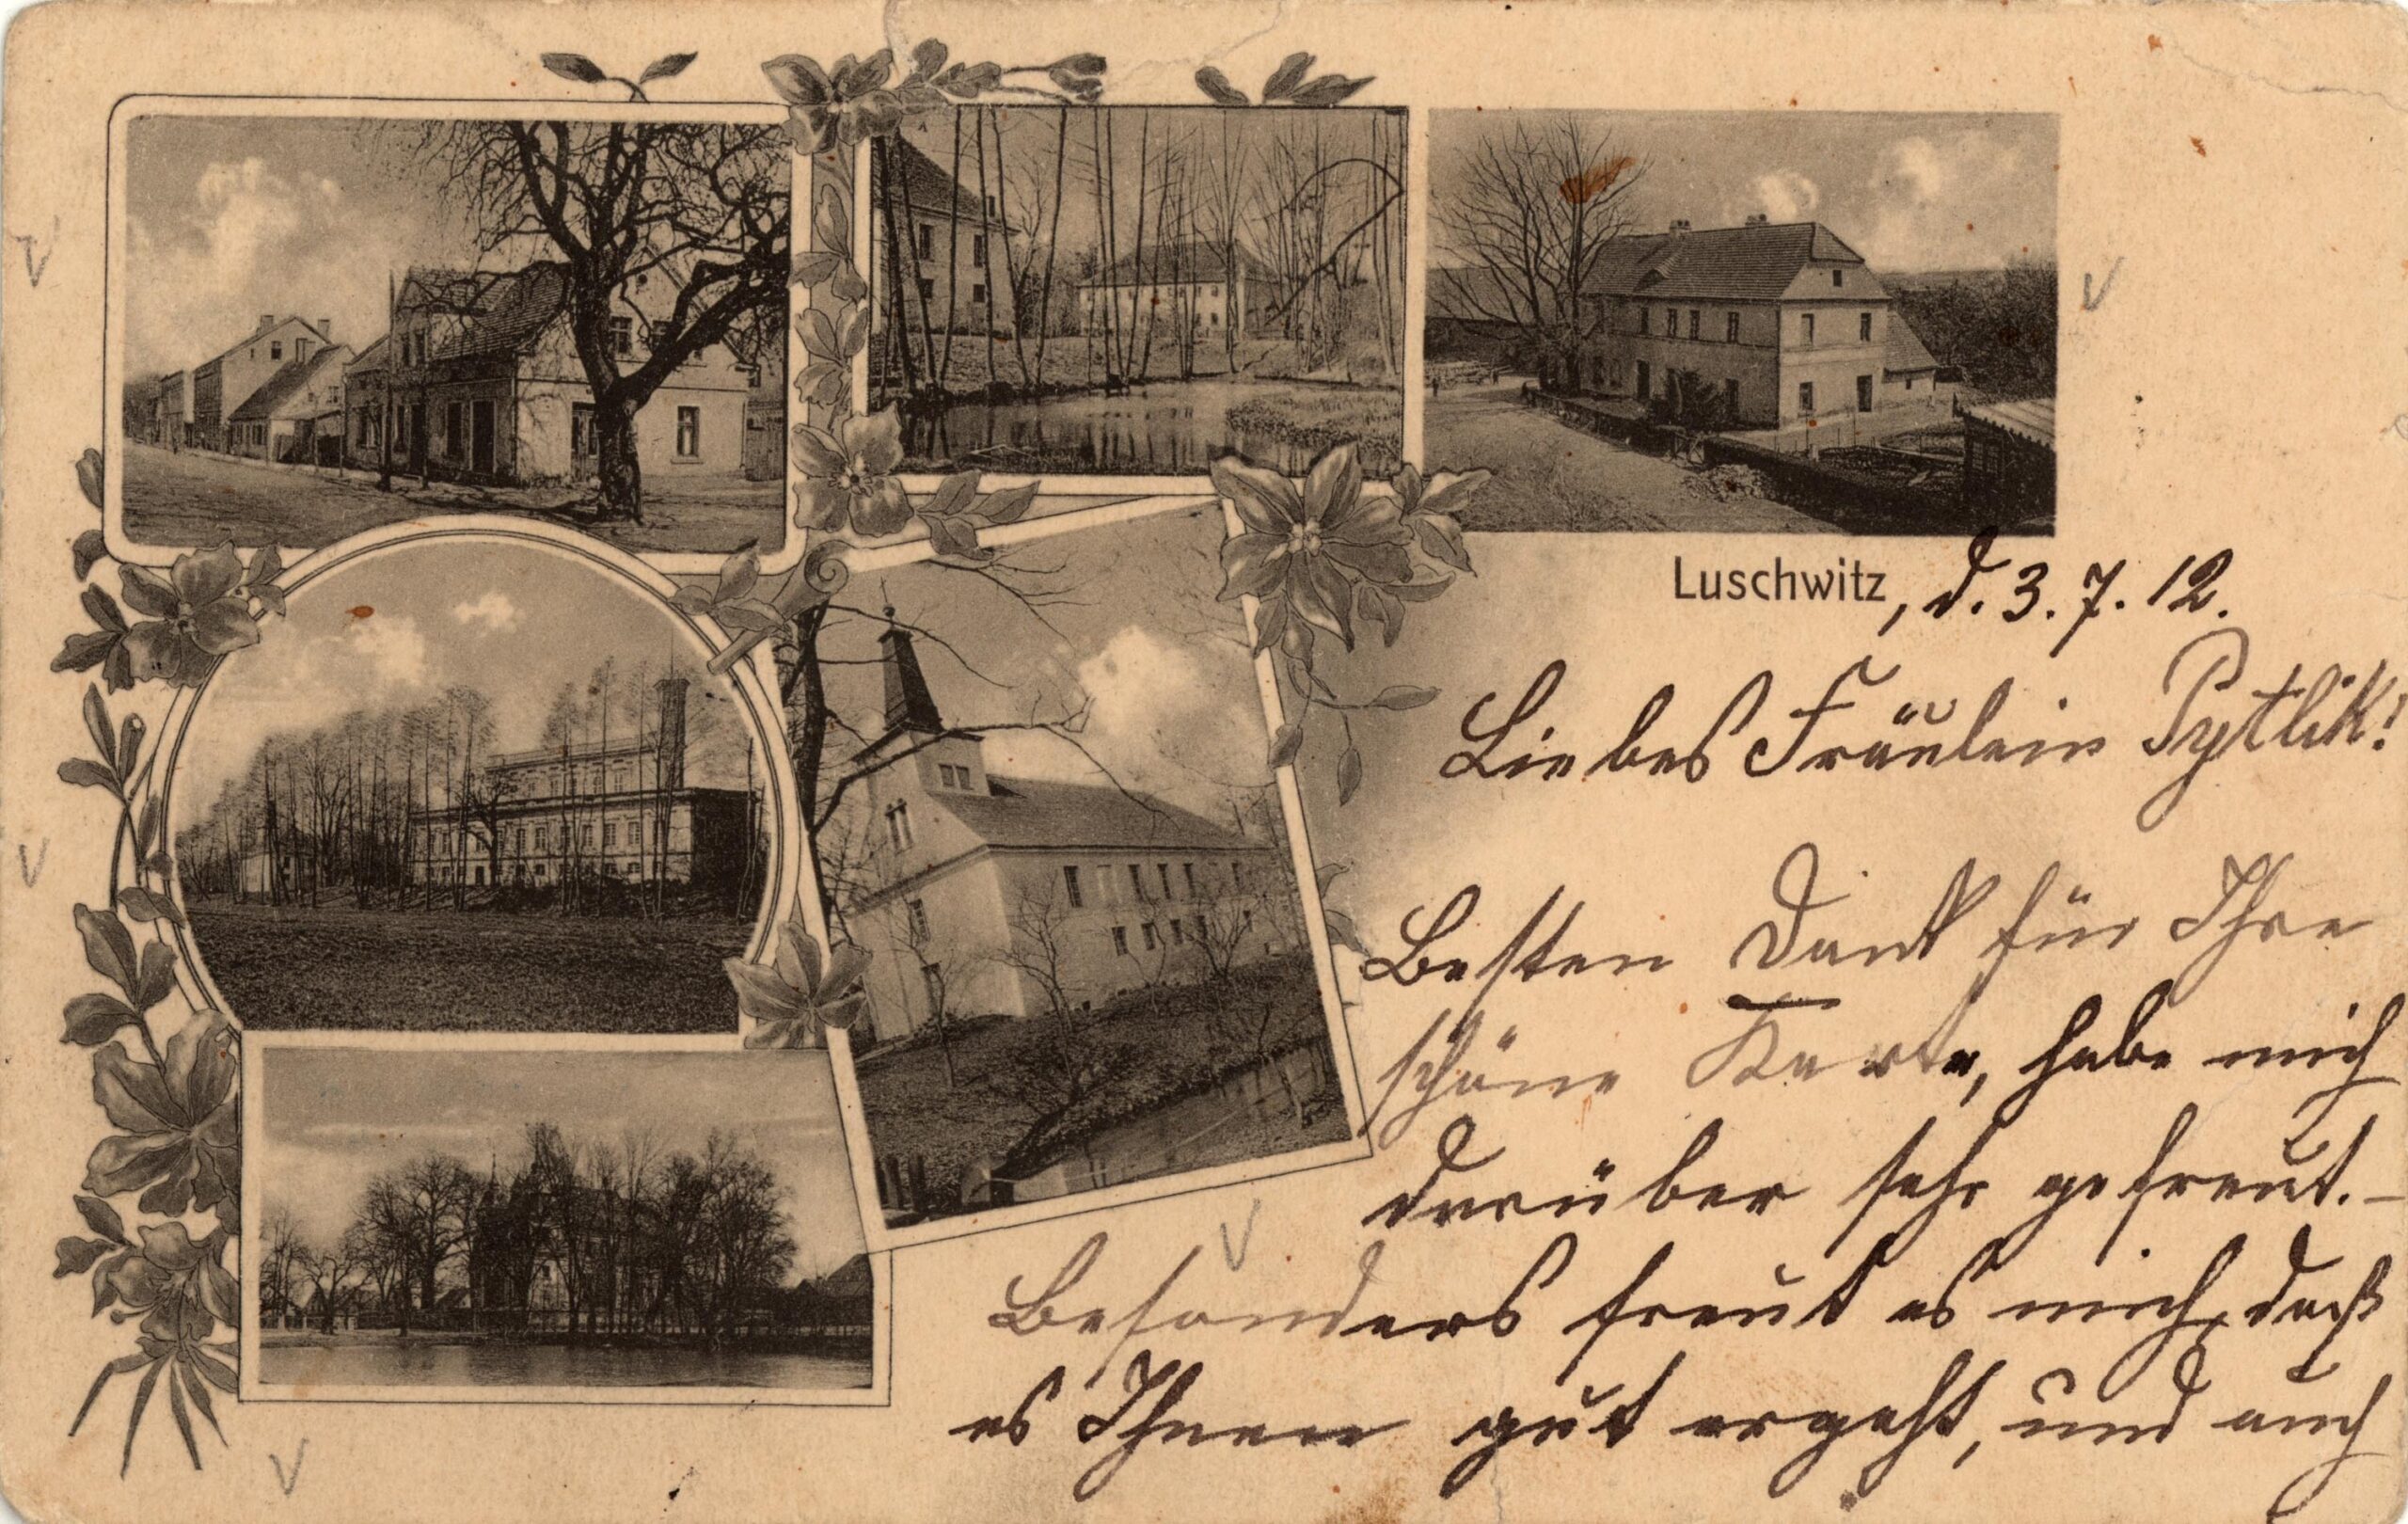 Luschwitz, d. 3. 7. 12.
Liebes Fräulein Pytlik!
Besten Dank für Ihre
schöne Karte, habe mich
darüber sehr gefreut. –
Besonders freut es mich, daß
es Ihnen gut ergeht, und auch